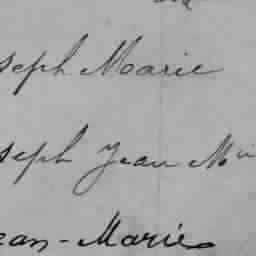 seph Marie
seph Jean M
ean-Marie